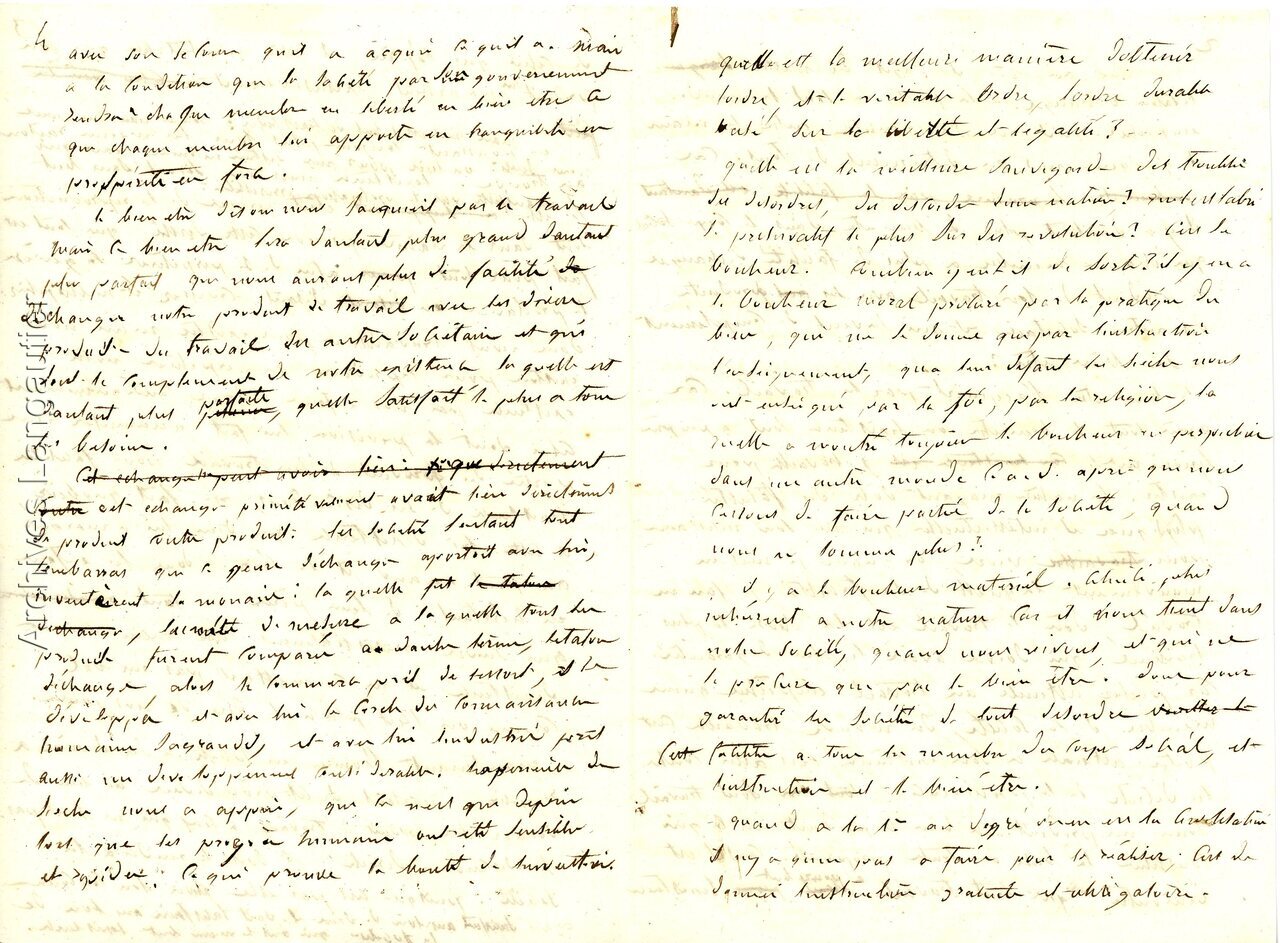 4
avec son secour quil a acquis ce quil a. mais
a la condition que la société par son gouvernement
rendra a chaque membre en liberté en bien etre ce
que chaque membre lui apporte en tranquilité en
prospérité en force.
le bien etre disons nous sacquiert par le travail
mais ce bien etre sera dautant plus grand dautant
plus parfait que nous aurons plus de facilité de
déchanger notre produit de travail avec les divers
produits du travail des autres sociétaire et qui
sont le complement de notre existence la quelle est
dautant plus parfaite, quelle satisfait le plus a tous
les besoins.
Cet echange peut avoir lieu directement
cet echange primitivement avait lieu directement
produit contre produit: les société sentant tout
lembarras que ce genre déchange aportait avec lui,
inventèrent la monaie: la quelle fut le talon
déchange, lunité de mesure a la quelle tous les
produits furent comparé dautre terme, letalon
déchange, alors le commerce prit de lessort, il se
développa et avec lui le cercle des connaissances
humaine sagrandit, et avec lui lindustrie prit
aussi un developpement considerable. lexperience des
siecles nous a appris, que ce nest que depuis
lors que les progrès humains ont été sensible
et rapides: ce qui prouve la bonté de linvention.
quelle est la meilleure manière dobtenir
lordre, et le veritable ordre, lordre durable
basé sur la liberté et légalité?
quelle est la meilleure sauvegarde des troubles
des desordres, des discordes dune nation?
le preservatif le plus sur des revolutions? Cest le
bonheur. Combien y en a-t-il de sorte? il y en a
le bonheur moral procuré par la pratique du
bien, qui ne se donne que par linstruction
lenseignement, qua leur défaut les siecles nous
ont enseigné par la foi, par la religion, la
quelle a montré toujours le bonheur en perspective
dans un autre monde c.a.d. après que nous
cessons de faire partie de la société, quand
nous ne somme plus!
il y a le bonheur materiel. Celui ci plus
inhérent a notre nature car il nous tient dans
notre société, quand nous vivons, et qui ne
se procure que par le bien être. Donc pour
garantir les société de tout desordre
Cest faciliter a tous les membres du corps social, et
linstruction et le bien être.
quand a la 1re au degré ou en est la civilisation
il ny a quun pas a faire pour la réaliser; Cest de
donner linstruction gratuite et obligatoire.
Archives Langaulier